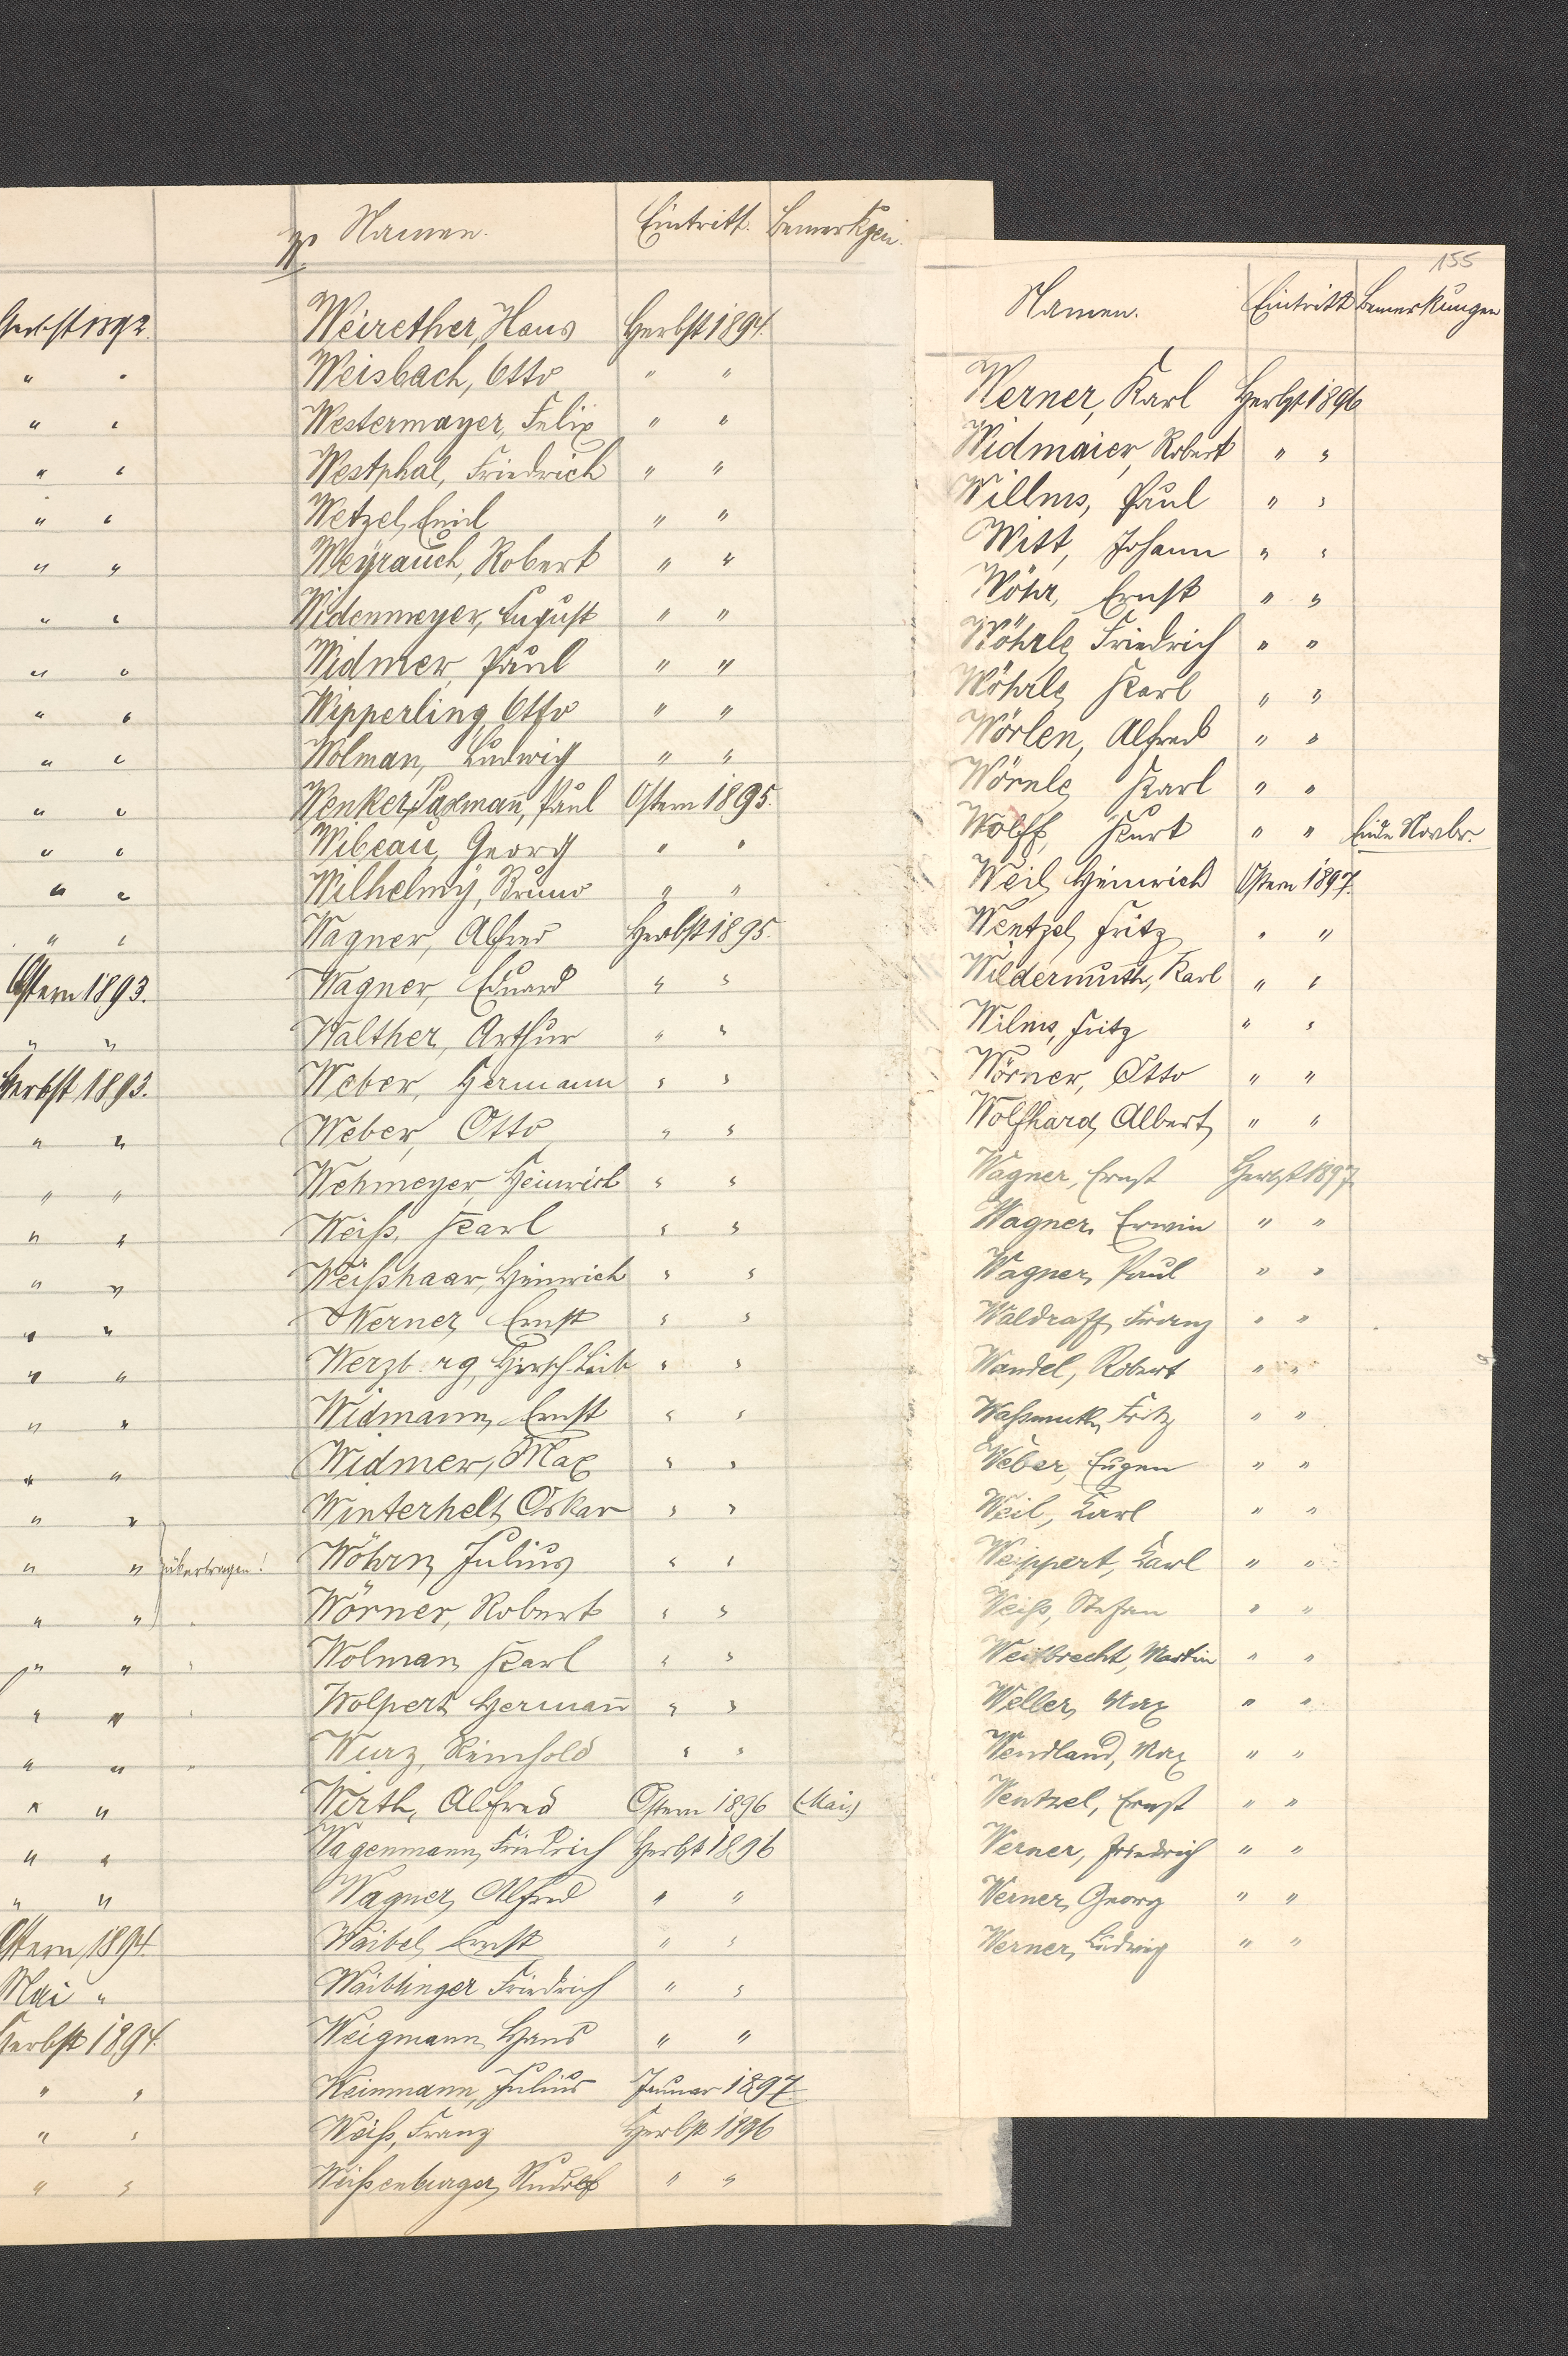 Herbst 1892.
" "
" "
" "
" "
" "
" "
" "
" "
" "
" "
" "
" "
" "
Ostern 1893.
" "
Herbst 1893.
" "
" "
" "
" "
" "
" "
" "
" "
" "
" " übertragen!
" "
" "
" "
" "
" "
" "
" "
Ostern 1894.
Mai "
Herbst 1894.
" "
" "
" "
Namen. Eintritt. Bemerkgen.
Weirether, Hans Herbst 1894.
Weisbach, Otto " "
Westermayer, Felix " "
Westphal, Friedrich " "
Wetzel, Emil " "
Weyrauch, Robert " "
Widenmeyer, August " "
Widmer, Paul " "
Wipperling, Otto " "
Wolman, Ludwig " "
Wenker, Paxmann, Paul Ostern 1895.
Wibeau, Georg " "
Wilhelmy, Bruno " "
Wagner, Alfred Herbst 1895.
Wagner, Eduard " "
Walther, Arthur " "
Weber, Hermann " "
Weber, Otto " "
Wehmeyer, Heinrich " "
Weiß, Karl " "
Weißhaar, Heinrich " "
Werner, Ernst " "
Hirsch Leib " "
Widmann, Ernst " "
Widmer, Max " "
Winterhelt, Oskar " "
Wöhrn, Julius " "
Wörner, Robert " "
Wolman, Karl " "
Wolpert, Hermann " "
Wurz, Reinhold " "
Wirth, Alfred Ostern 1896 (Mai)
Wagenmann, Friedrich Herbst 1896
Wagner, Alfred " "
Waibel, Ernst " "
Waiblinger Friedrich " "
Weigmann Hans " "
Weinmann, Julius Januar 1897.
Weiß, Franz Herbst 1896
Weißenburger, Rudolf " "
155
Namen. Eintritt Bemerkungen
Werner, Karl Herbst 1896
Widmaier, Robert " "
Willms, Paul " "
Witt, Johann " "
Wöhr, Ernst " "
Wöhrle, Friedrich " "
Wöhrle, Karl " "
Wörlen, Alfred " "
Wörnle, Karl " "
Wolff, Kurt " " Ende Novbr.
Weil, Heinrich Ostern 1897.
Wentzel, Fritz " "
Wildermuth, Karl " "
Wilms, Fritz " "
Wörner, Otto " "
Wolfhard, Albert, " "
Wagner, Ernst Herbst 1897
Wagner, Erwin " "
Wagner, Paul " "
Waldraff, Franz " "
Wandel, Robert " "
Waßmuth, Fritz " "
Weber, Eugen " "
Weil, Karl " "
Weippert, Karl " "
Weiß, Stefan " "
Weitbrecht, Martin " "
Weller, Max " "
Wendland, Max " "
Wentzel, Ernst " "
Werner, Friedrich " "
Werner, Georg " "
Werner, Ludwig " "